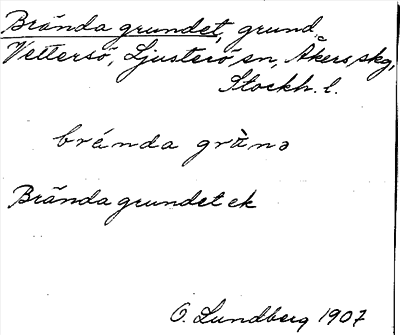 Brända grundet, grund.
Vettersö, Ljusterö sn, Åkers skg,
Stockh. l.
bránda grùnə
Brända grundet ek
O. Lundberg 1907